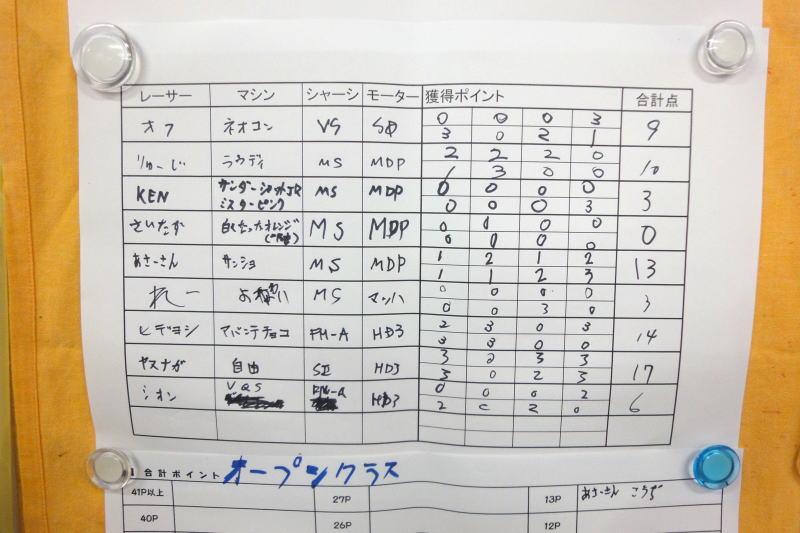 レーサー マシン シャーシ モーター 獲得ポイント 合計点
オフ ネオコン VS SD 0 0 0 3 9
3 0 2 1
りゅーじ ラウディ MS MDP 2 2 2 0 10
1 3 0 0
KEN サンダーショットJr MS MDP 0 0 0 0 3
ミスターピンク 0 0 0 3
さいたか 白くなったオレンジ MS MDP 0 0 0 0 0
0 0 0 0
あさーさん サンショ MS MDP 1 2 1 2 13
1 1 2 3
れー MS マッハ 0 0 0 0 3
0 0 3 0
ヒデヨシ アバンテチョコ FM-A HD3 2 3 0 3 14
3 3 0 0
ヤスナガ 自由 SII HD3 3 2 3 3 17
3 0 2 3
シオン VQS FM-A HD3 0 0 0 2 6
2 c 2 0
合計ポイント オープンクラス
41P以上 27P 13P あさーさん こうじ
40P 26P 12P